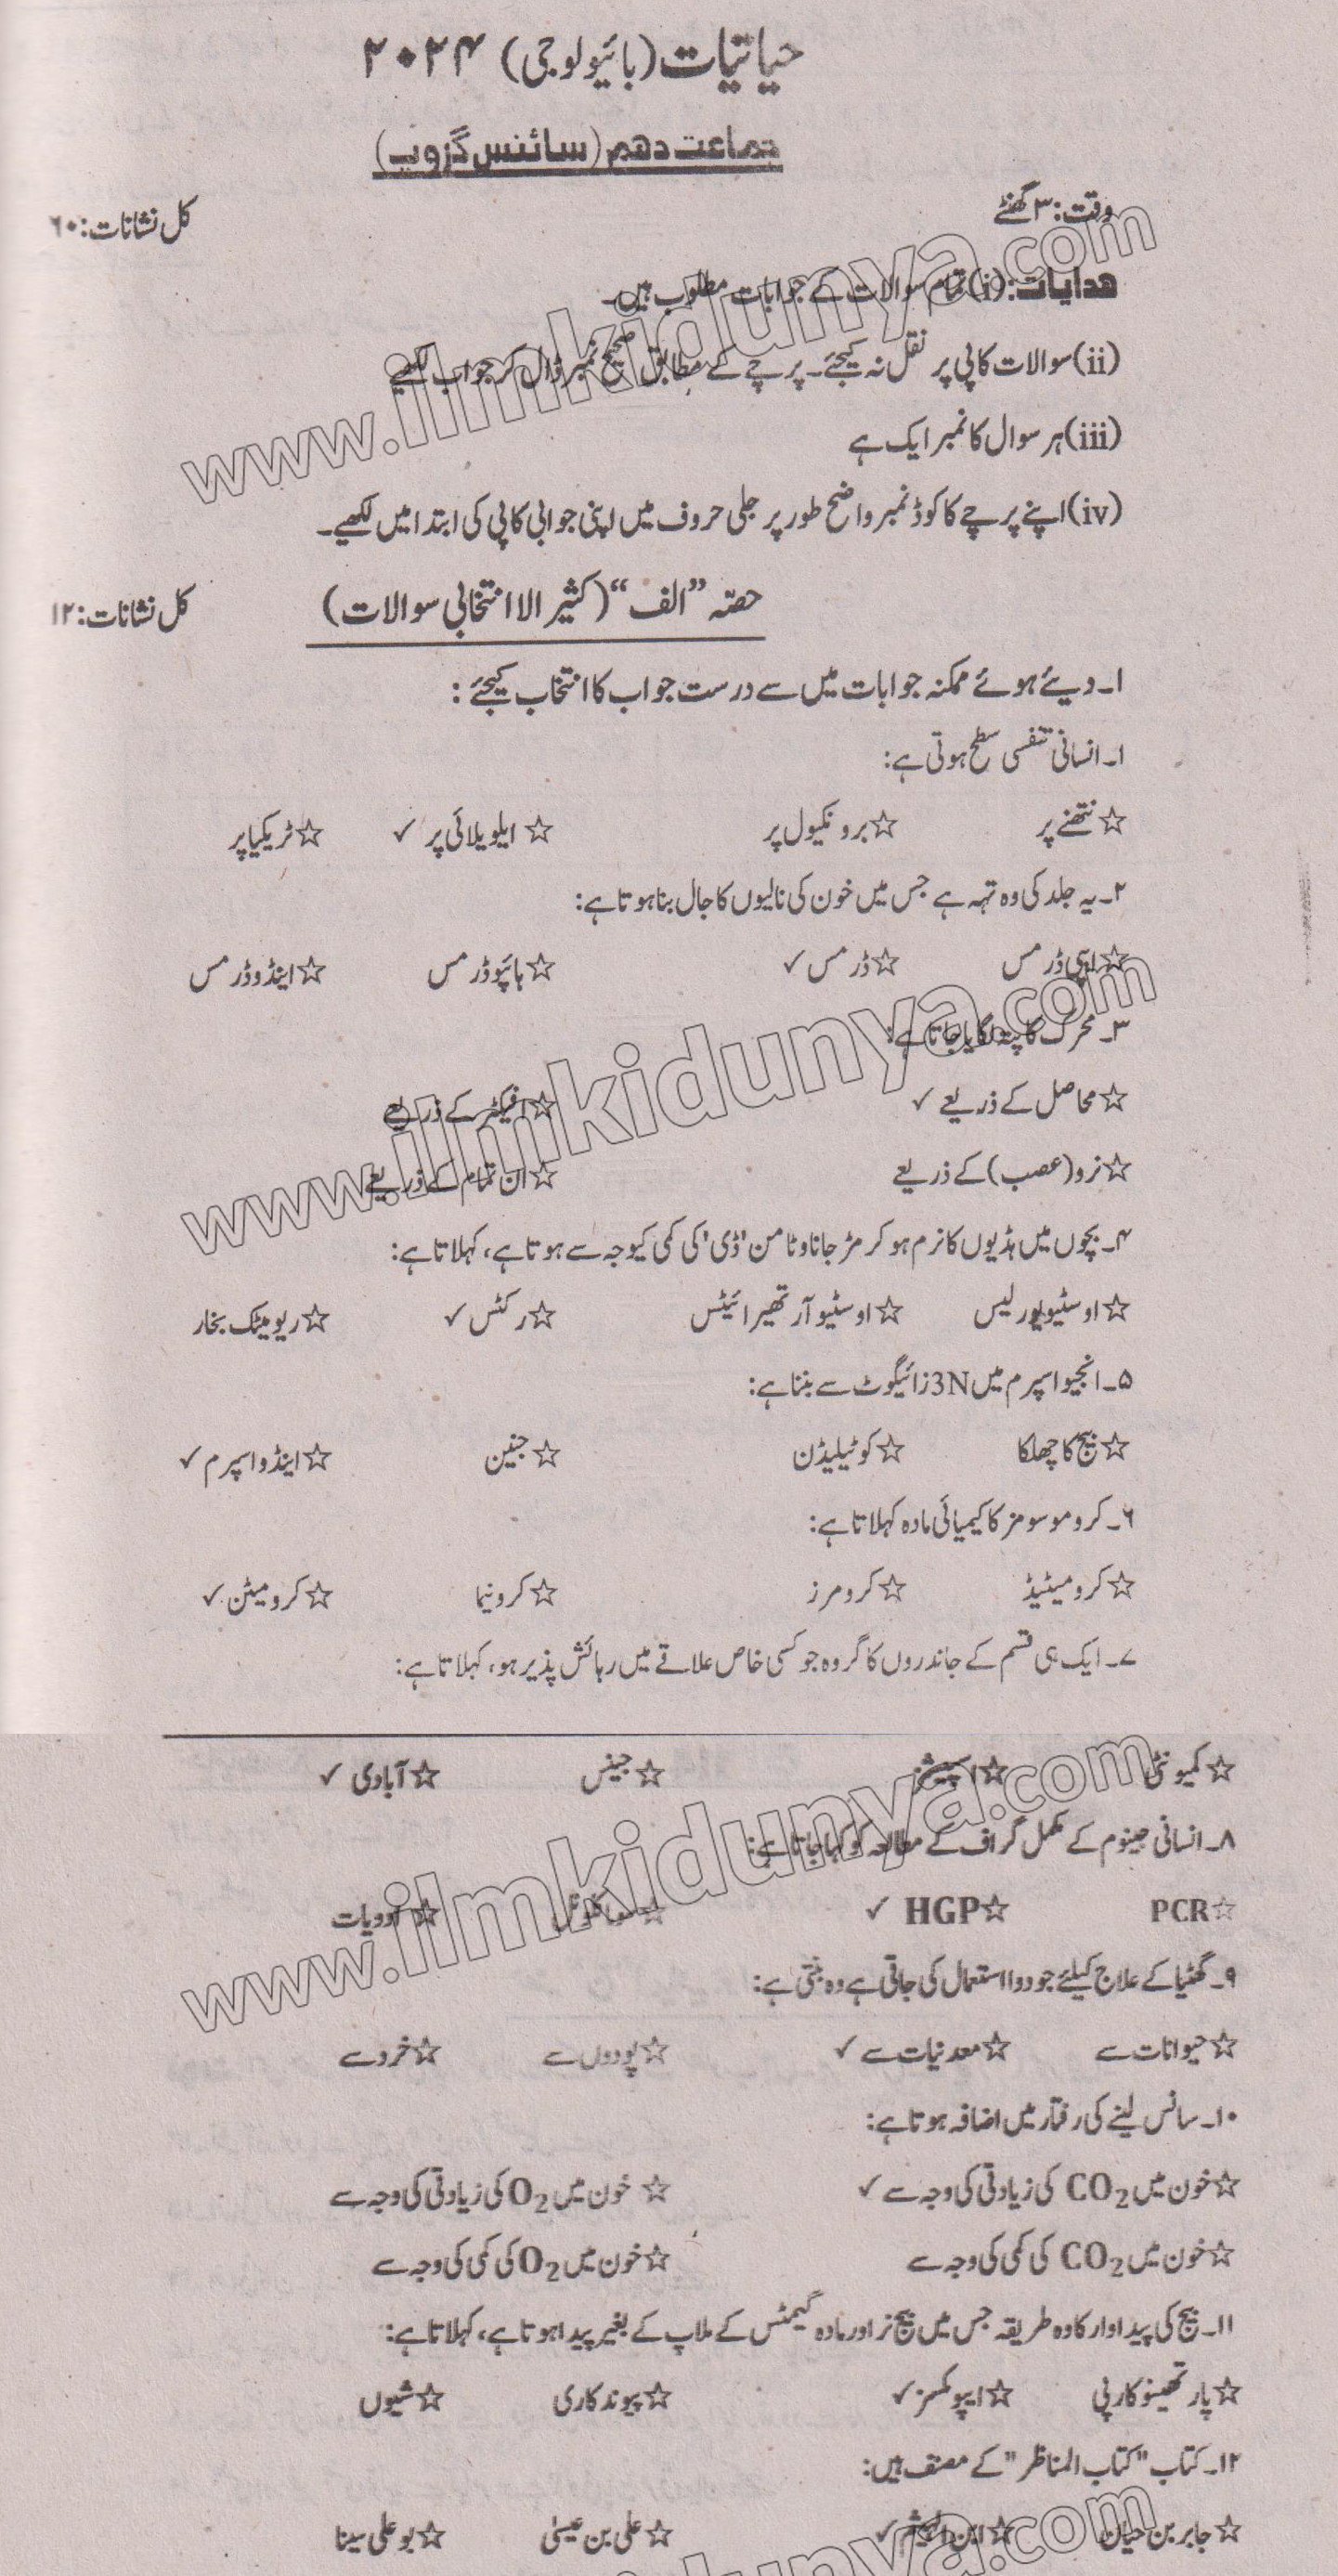 حیاتیات (بائیولوجی) ۲۰۲۴
جماعت دھم (سائنس گروپ)
وقت: ۳ گھنٹے کل نشانات: ۶۰
ھدایات: (i) تمام سوالات کے جوابات مطلوب ہیں۔
(ii) سوالات کاپی پر نقل نہ کیجئے۔ پرچے کے مطابق صحیح نمبر ڈال کر جواب لکھیے
(iii) ہر سوال کا نمبر ایک ہے
(iv) اپنے پرچے کا کوڈ نمبر واضح طور پر جلی حروف میں اپنی جوابی کاپی کی ابتدا میں لکھیے۔
حصّہ ”الف“ (کثیر الاانتخابی سوالات) کل نشانات: ۱۲
۱۔ دیئے ہوئے ممکنہ جوابات میں سے درست جواب کا انتخاب کیجئے:
۱۔ انسانی تنفسی سطح ہوتی ہے:
☆ نتھنے پر ☆ برونکیول پر ☆ ایلویلائی پر ✓ ☆ ٹریکیا پر
۲۔ یہ جلد کی وہ تہہ ہے جس میں خون کی نالیوں کا جال بنا ہوتا ہے:
☆ اپی ڈرمس ☆ ڈرمس ✓ ☆ ہائپوڈرمس ☆ اینڈوڈرمس
۳۔ محرک کا پتہ لگایا جاتا ہے:
☆ محاصل کے ذریعے ✓ ☆ افیکٹر کے ذریعے
☆ نرو (عصب) کے ذریعے ☆ ان تمام کے ذریعے
۴۔ بچوں میں ہڈیوں کا نرم ہو کر مڑ جانا وٹامن 'ڈی' کی کمی کیوجہ سے ہوتا ہے، کہلاتا ہے:
☆ اوسٹیوپورلیس ☆ اوسٹیو آرتھیرائیٹس ☆ رکٹس ✓ ☆ ریومیٹک بخار
۵۔ انجیواسپرم میں 3N زائیگوٹ سے بنتا ہے:
☆ بیج کا چھلکا ☆ کوٹیلیڈن ☆ جنین ☆ اینڈواسپرم ✓
۶۔ کروموسومز کا کیمیائی مادہ کہلاتا ہے:
☆ کرومیٹیڈ ☆ کرومرز ☆ کرونیما ☆ کرومیٹن ✓
۷۔ ایک ہی قسم کے جانداروں کا گروہ جو کسی خاص علاقے میں رہائش پذیر ہو، کہلاتا ہے:
☆ کمیونٹی ☆ اسپیشیز ☆ جینس ☆ آبادی ✓
۸۔ انسانی جینوم کے مکمل گراف کے مطالعہ کو کہا جاتا ہے:
☆ PCR ☆ HGP ✓ ☆ ☆ ادویات
۹۔ گھٹیا کے علاج کیلئے جو دوا استعمال کی جاتی ہے وہ بنتی ہے:
☆ حیوانات سے ☆ معدنیات سے ✓ ☆ پودوں سے ☆ خرد سے
۱۰۔ سانس لینے کی رفتار میں اضافہ ہوتا ہے:
☆ خون میں CO₂ کی زیادتی کی وجہ سے ✓ ☆ خون میں O₂ کی زیادتی کی وجہ سے
☆ خون میں CO₂ کی کمی کی وجہ سے ☆ خون میں O₂ کی کمی کی وجہ سے
۱۱۔ بیج کی پیداوار کا وہ طریقہ جس میں بیج نر اور مادہ گیمٹس کے ملاپ کے بغیر پیدا ہوتا ہے، کہلاتا ہے:
☆ پارتھینوکارپی ☆ ایپومکسز ✓ ☆ پیوندکاری ☆ شیوں
۱۲۔ کتاب "کتاب المناظر" کے مصنف ہیں:
☆ جابر بن حیان ☆ ابن الہیثم ✓ ☆ علی بن عیسیٰ ☆ بو علی سینا
www.ilmkidunya.com
www.ilmkidunya.com
www.ilmkidunya.com